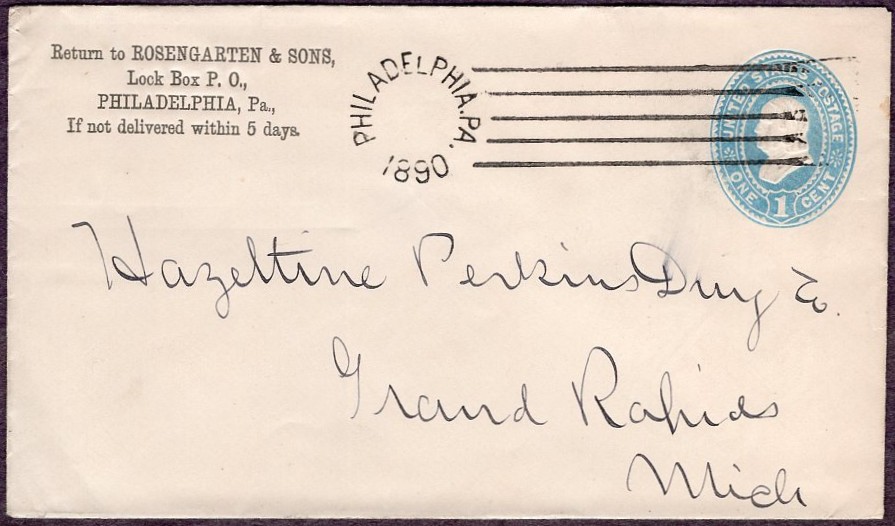 Return to ROSENGARTEN & SONS,
Lock Box P. O.,
PHILADELPHIA, Pa.,
If not delivered within 5 days.
PHILADELPHIA.PA.
1890
UNITED STATES POSTAGE
ONE 1 CENT
Hazeltine Perkins Drug Co.
Grand Rapids
Mich